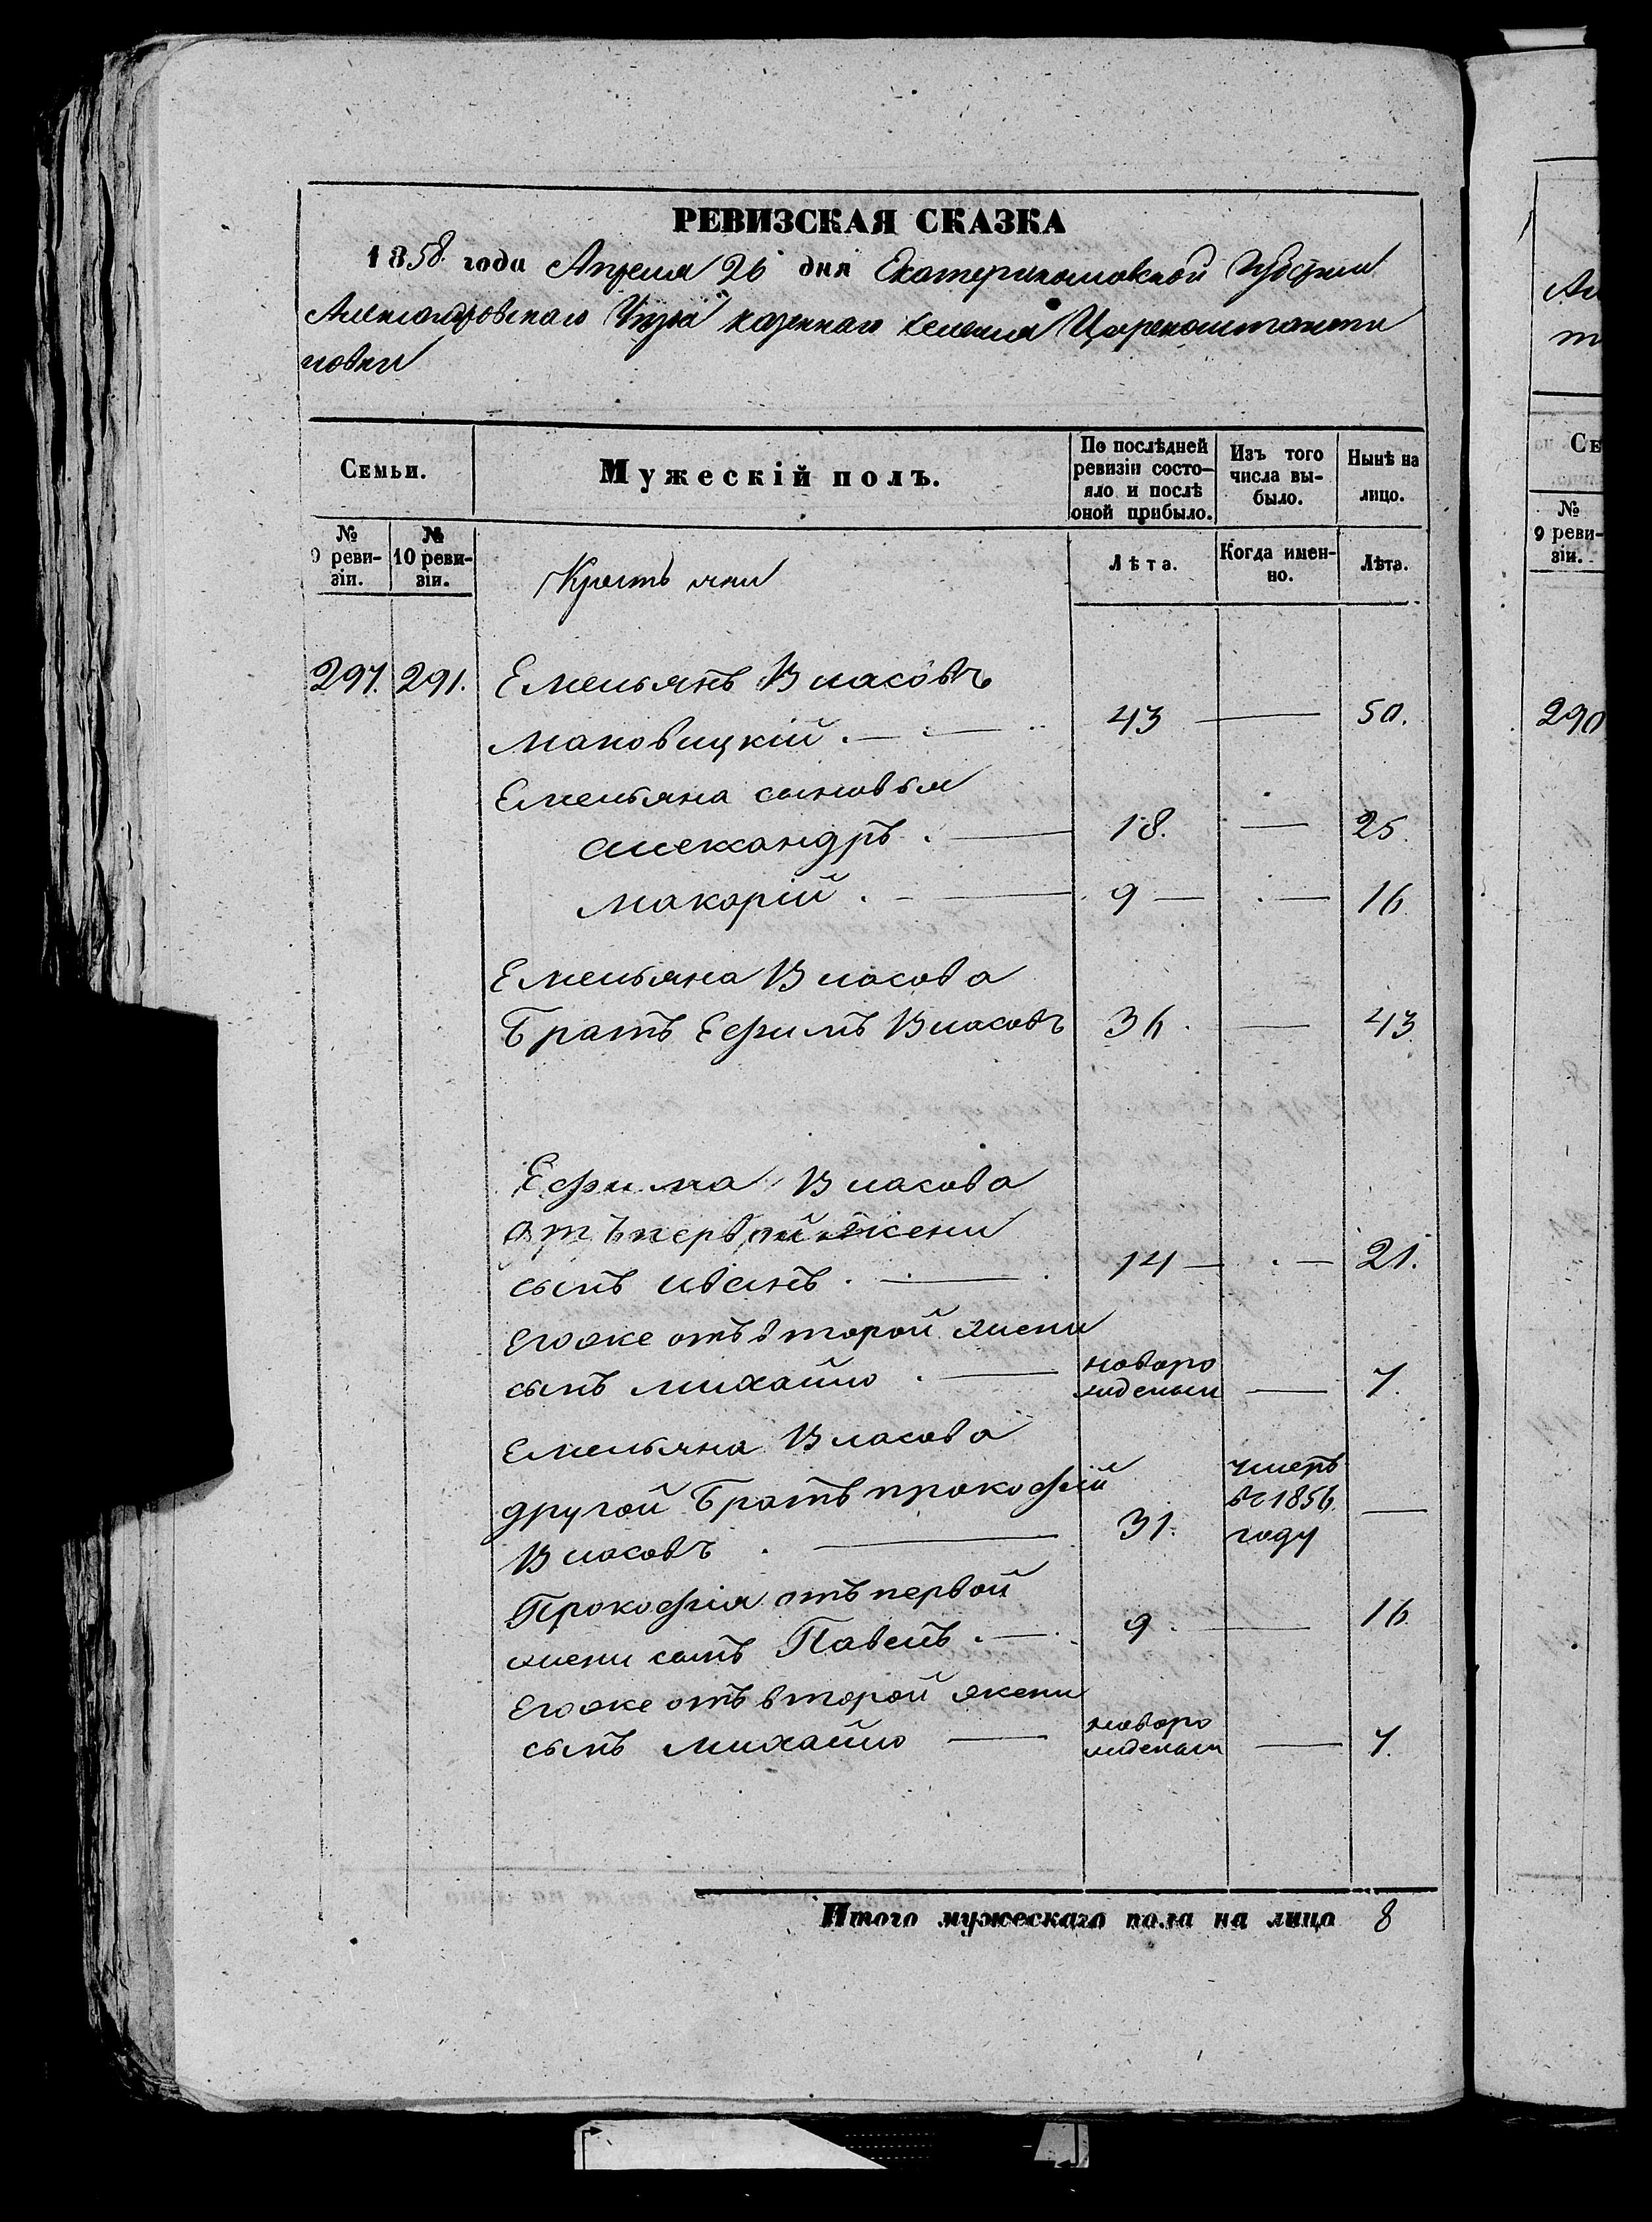 РЕВИЗСКАЯ СКАЗКА
1858 года Апреля 26 дня Екатеринославской Губернии
Александровскаго Уѣзда казеннаго селения Цареконстанти
новки
Семьи.
Мужескій полъ.
По послѣдней
ревизіи состо-
яло и послѣ
оной прибыло.
Изъ того
числа вы-
было.
Нынѣ на
лицо.
№
9 реви-
зіи.
№
10 реви-
зіи.
Крестьяни
Лѣта.
Когда имен-
но.
Лѣта.
297. 291. Емельянъ Власовъ
Маковицкій . — 43 — 50.
Емельяна сыновья
Александръ . — 18. — 25.
Макарій . — 9 — . — 16.
Емельяна Власова
Братъ Ефимъ Власовъ 36. — 43
Ефима Власова
отъ первой жени
сынъ Иванъ . — . 14 — . — 21.
Егоже отъ второй жени
новоро
сынъ Михайло . — жденый — 7.
Емельяна Власова
другой Братъ Прокофій
умеръ
въ 1856.
году
Власовъ . — 31. —
Прокофія отъ первой
жени сынъ Павелъ . — . 9. — 16.
Егоже отъ второй жени
новоро
сынъ Михайло — жденый — 7.
Итого мужескаго пола на лицо 8
Се
№
9 реви-
зіи.
290